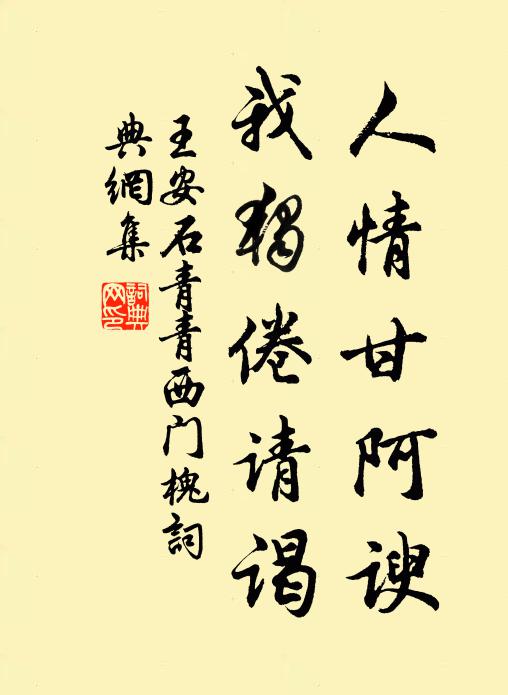 人情甘阿谀
我独倦请谒
王安石青青西门槐詞
典網集
詞典網印